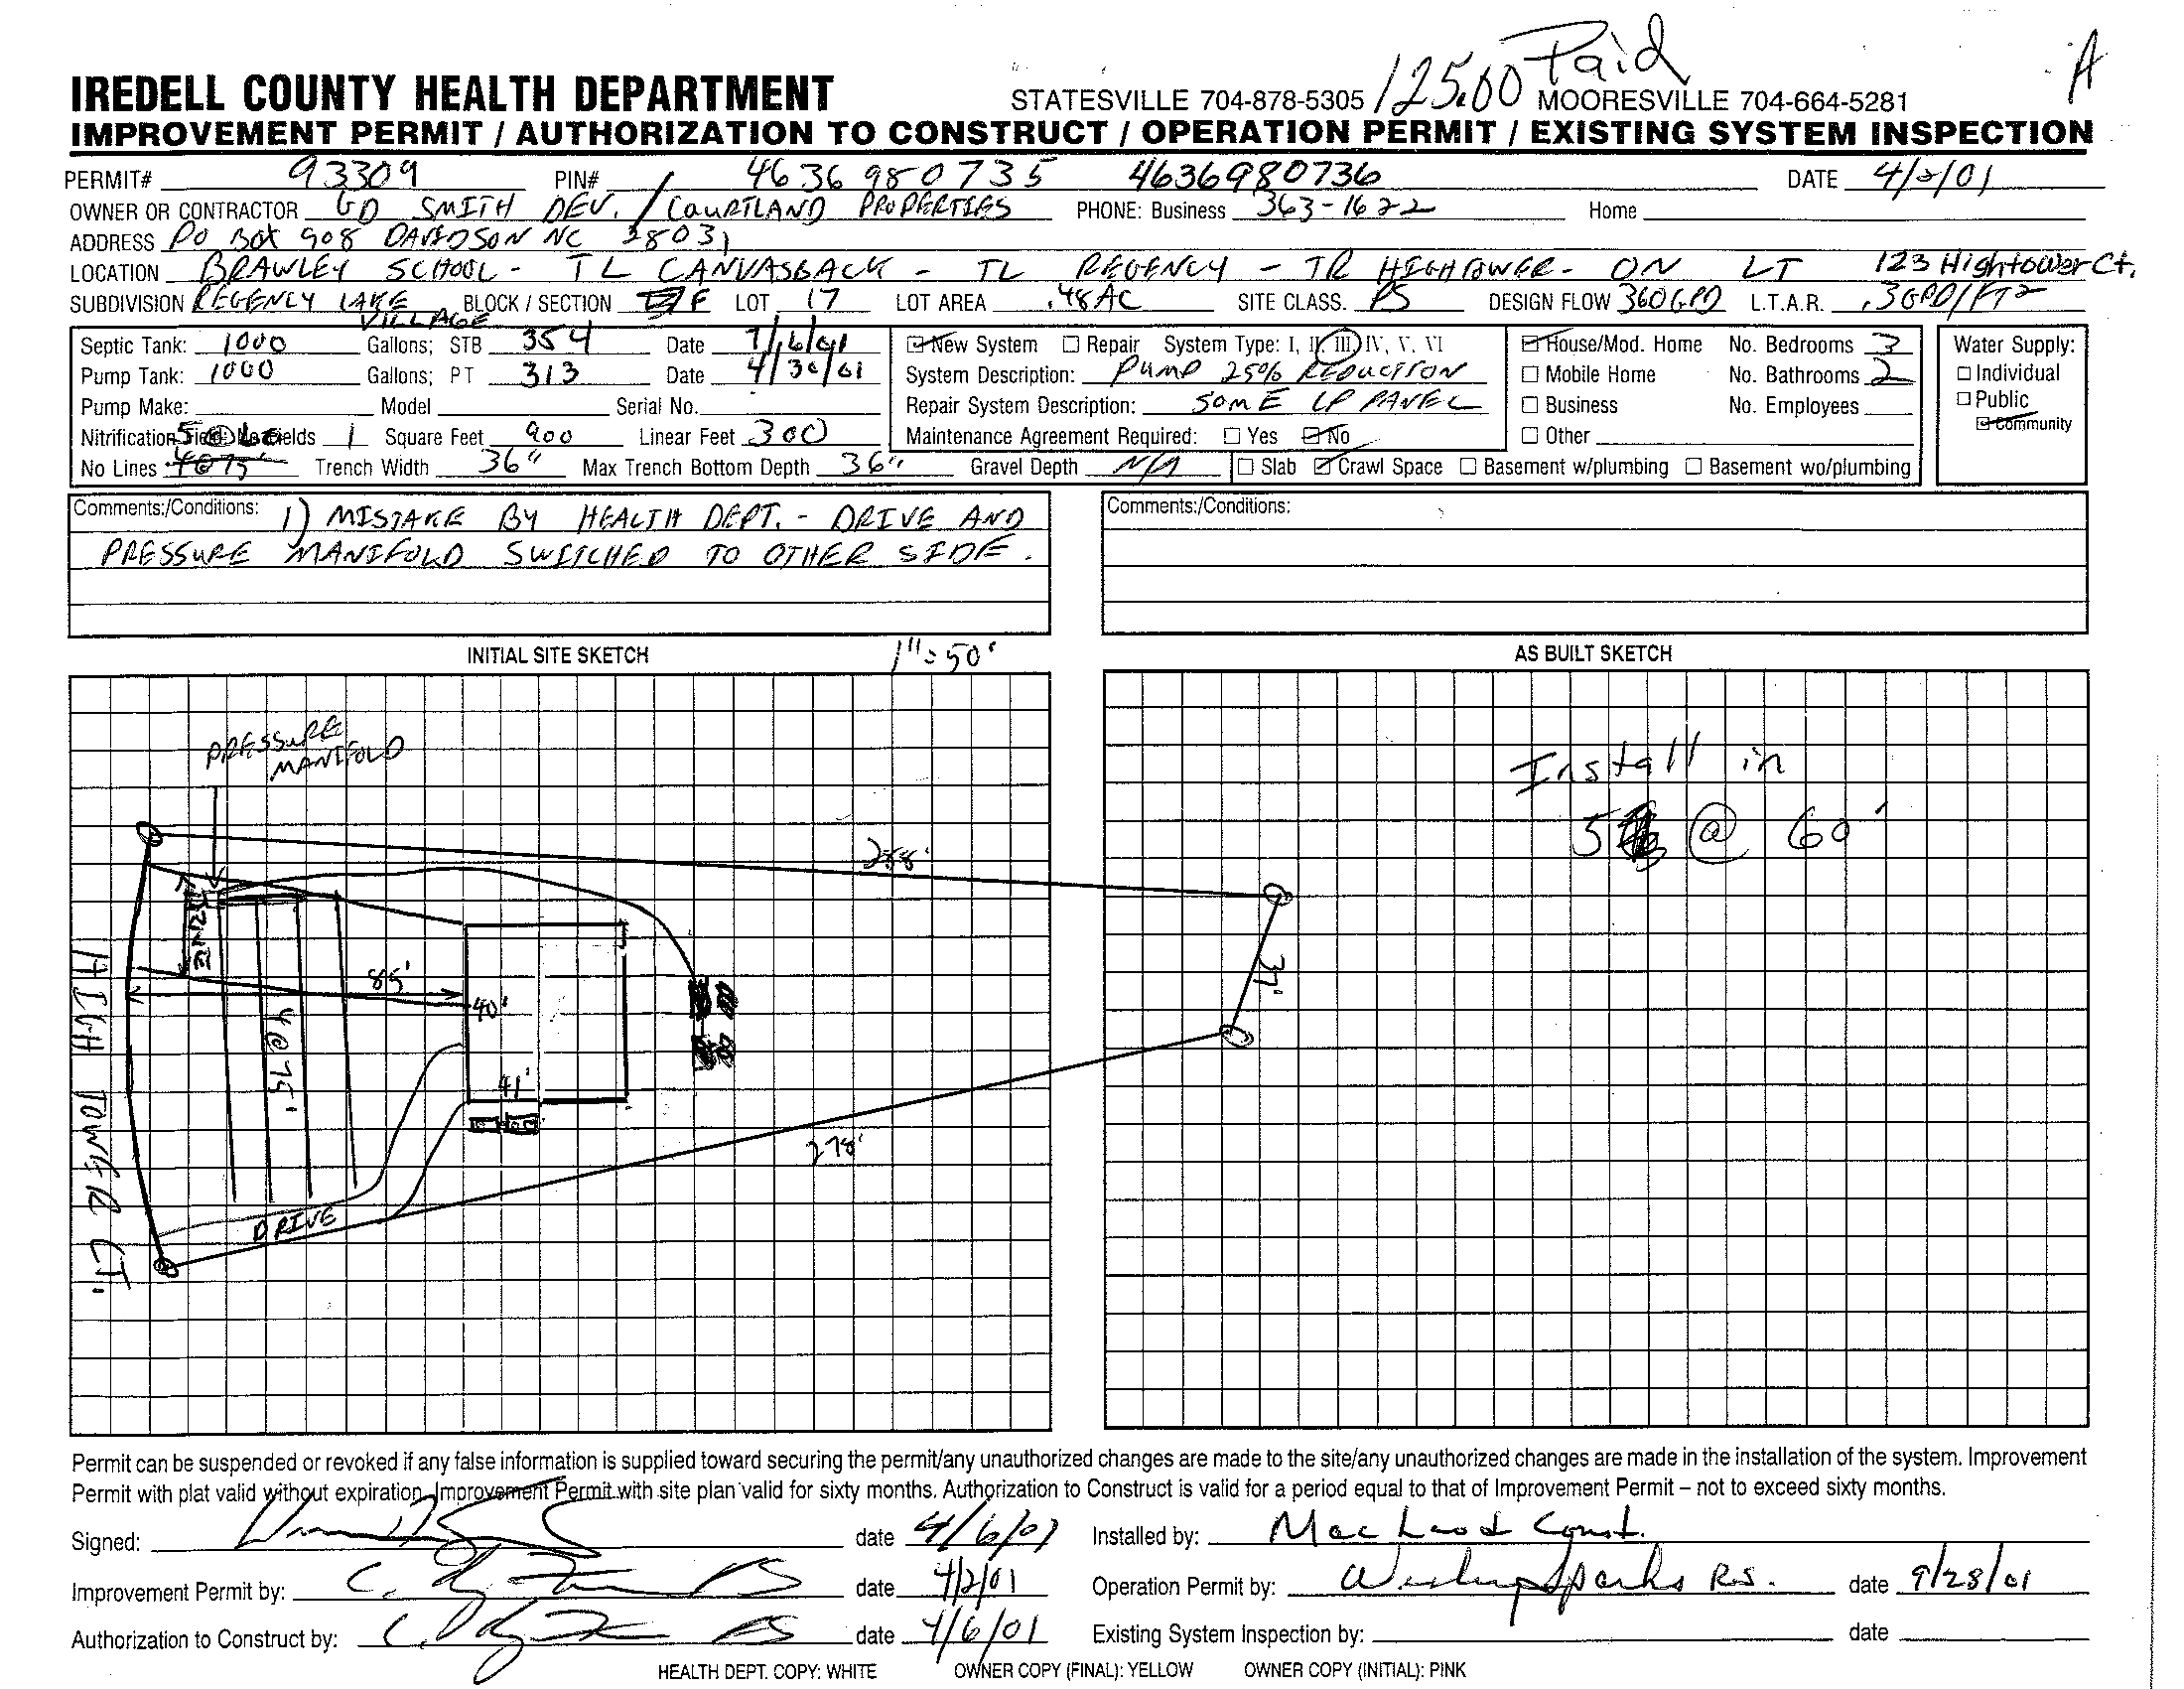 Paid
A
IREDELL COUNTY HEALTH DEPARTMENT STATESVILLE 704-878-5305 125.00 MOORESVILLE 704-664-5281
IMPROVEMENT PERMIT / AUTHORIZATION TO CONSTRUCT / OPERATION PERMIT / EXISTING SYSTEM INSPECTION
PERMIT# 93309 PIN# 4636980735 4636980736 DATE 4/2/01
OWNER OR CONTRACTOR GD SMITH DEV. / COURTLAND PROPERTIES PHONE: Business 363-1622 Home
ADDRESS PO BOX 908 DAVIDSON NC 28031
LOCATION BRAWLEY SCHOOL - TL CANVASBACK - TL REGENCY - TR HIGHTOWER - ON LT 123 Hightower Ct.
SUBDIVISION REGENCY LAKE VILLAGE BLOCK / SECTION F LOT 17 LOT AREA .48 AC SITE CLASS. PS DESIGN FLOW 360 GPD L.T.A.R. .3 GPD/FT2
Septic Tank: 1000 Gallons; STB 354 Date 7/6/01 New System Repair System Type: I, II, III, IV, V, VI House/Mod. Home No. Bedrooms 3 Water Supply:
Pump Tank: 1000 Gallons; PT 313 Date 4/30/01 System Description: PUMP 25% REDUCTION Mobile Home No. Bathrooms 2 Individual
Pump Make: Model Serial No. Repair System Description: SOME LP PANEL Business No. Employees Public
Nitrification Field: No. Fields 1 Square Feet 900 Linear Feet 300 Maintenance Agreement Required: Yes No Other Community
No Lines 4@75' Trench Width 36" Max Trench Bottom Depth 36" Gravel Depth N/A Slab Crawl Space Basement w/plumbing Basement wo/plumbing
Comments:/Conditions: 1) MISTAKE BY HEALTH DEPT. - DRIVE AND
PRESSURE MANIFOLD SWITCHED TO OTHER SIDE.
Comments:/Conditions:
INITIAL SITE SKETCH 1"=50'
PRESSURE
MANIFOLD
288'
DRIVE
85'
40'
4@75'
41'
278'
DRIVE
HIGH TOWER CT.
AS BUILT SKETCH
Install in
5 @ 60'
37'
Permit can be suspended or revoked if any false information is supplied toward securing the permit/any unauthorized changes are made to the site/any unauthorized changes are made in the installation of the system. Improvement
Permit with plat valid without expiration. Improvement Permit with site plan valid for sixty months. Authorization to Construct is valid for a period equal to that of Improvement Permit – not to exceed sixty months.
Signed: date 4/6/01 Installed by: MacLeod Const.
Improvement Permit by: C. RS date 4/2/01 Operation Permit by: Wesley Sparks R.S. date 9/28/01
Authorization to Construct by: C. RS date 4/6/01 Existing System Inspection by: date
HEALTH DEPT. COPY: WHITE OWNER COPY (FINAL): YELLOW OWNER COPY (INITIAL): PINK